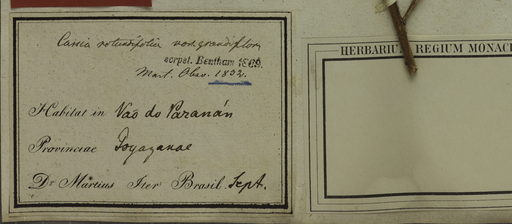 Cassia rotundifolia var. grandiflor.
scrpst. Bentham 1869.
Mart. Obsv. 1832.
Habitat in Vao do Paranán
Provinciae Goyazanae
Dr. Martius Iter Brasil. Sept.
HERBARIUM REGIUM MONAC